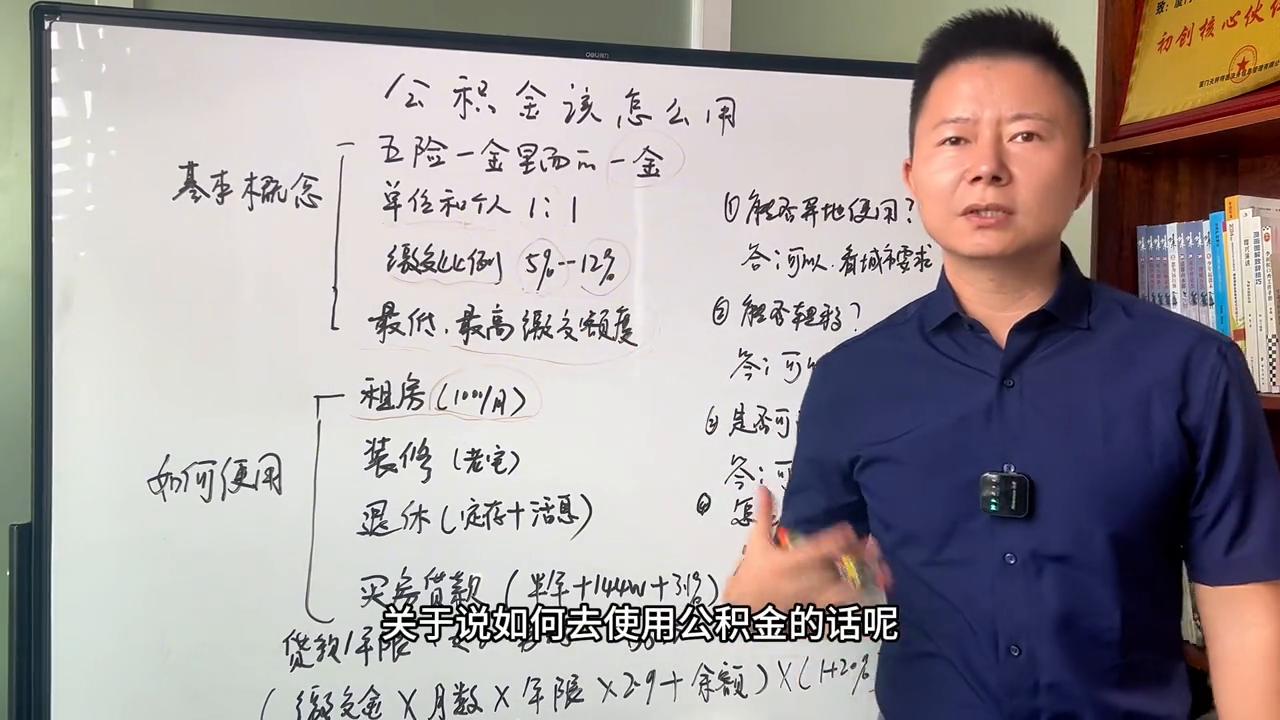 deli得力
公积金该怎么用
基本概念
五险一金里面的一金
单位和个人 1:1
缴交比例 5%--12%
最低、最高缴交额度
如何使用
租房(1000/月)
装修(老宅)
退休(定存+活息)
买房贷款(半年+144W+3.1%)
贷款/年限
(缴交金×月数×年限×2.9+余额)×(1+20%
①能否异地使用?
答:可以.看城市要求
②能否转移?
答:可
③是否可
答:可
④怎
关于说如何去使用公积金的话呢
致:厦门
初创核心伙伴